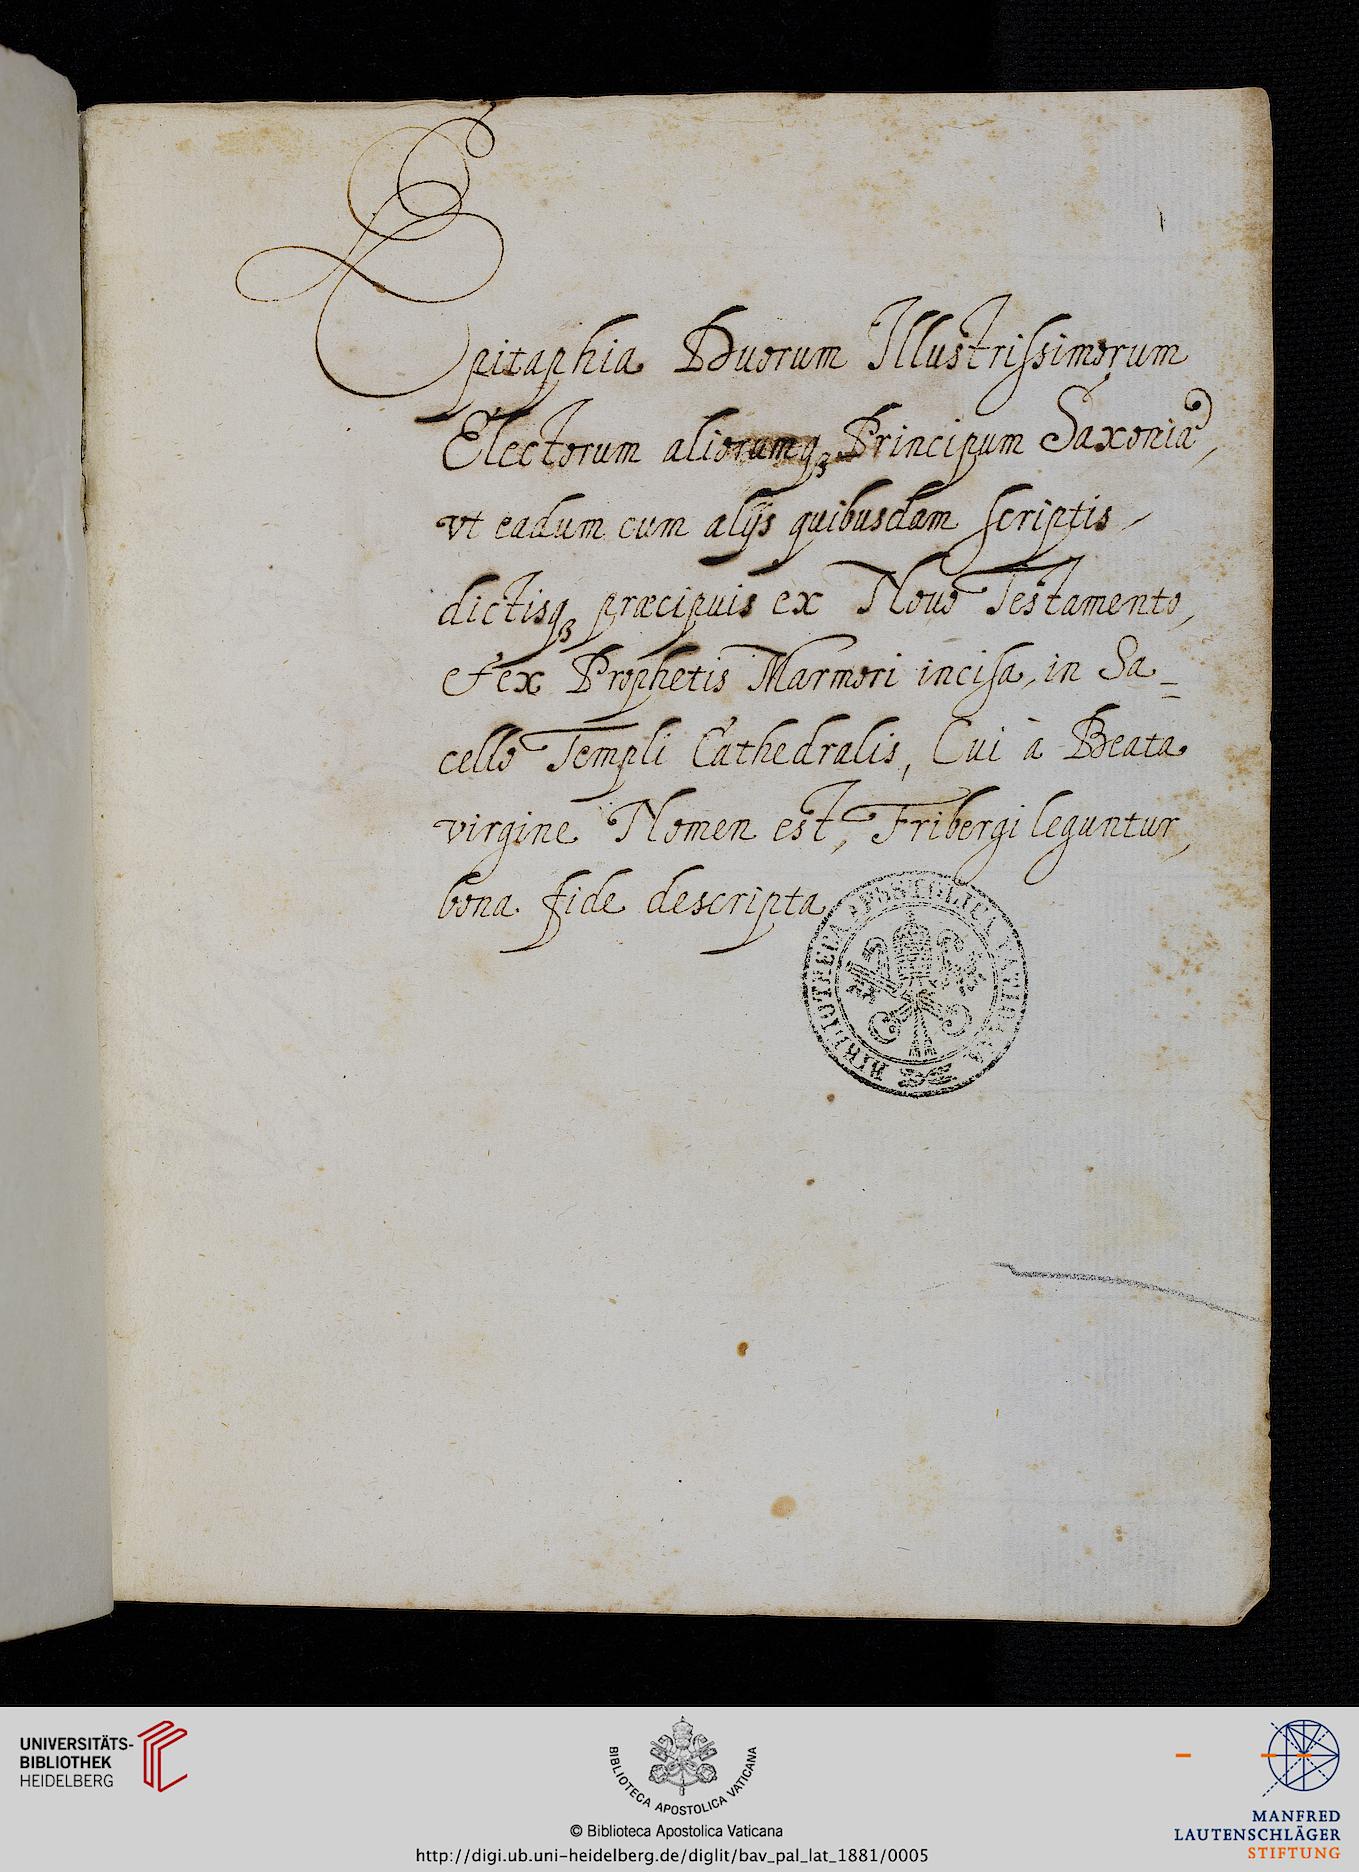 Epitaphia Duorum Illustrissimorum
Electorum aliorumq; Principum Saxoniæ,
vt eadum cum alijs quibusdam scriptis
dictisq; præcipuis ex Nouo Testamento,
et ex Prophetis Marmori incisa, in Sa=
cello Templi Cathedralis, Cui à Beata
virgine Nomen est, Fribergi leguntur,
bona fide descripta
BIBLIOTHECA APOSTOLICA VATICANA
UNIVERSITÄTS-
BIBLIOTHEK
HEIDELBERG
BIBLIOTECA APOSTOLICA VATICANA
© Biblioteca Apostolica Vaticana
http://digi.ub.uni-heidelberg.de/diglit/bav_pal_lat_1881/0005
MANFRED
LAUTENSCHLÄGER
STIFTUNG